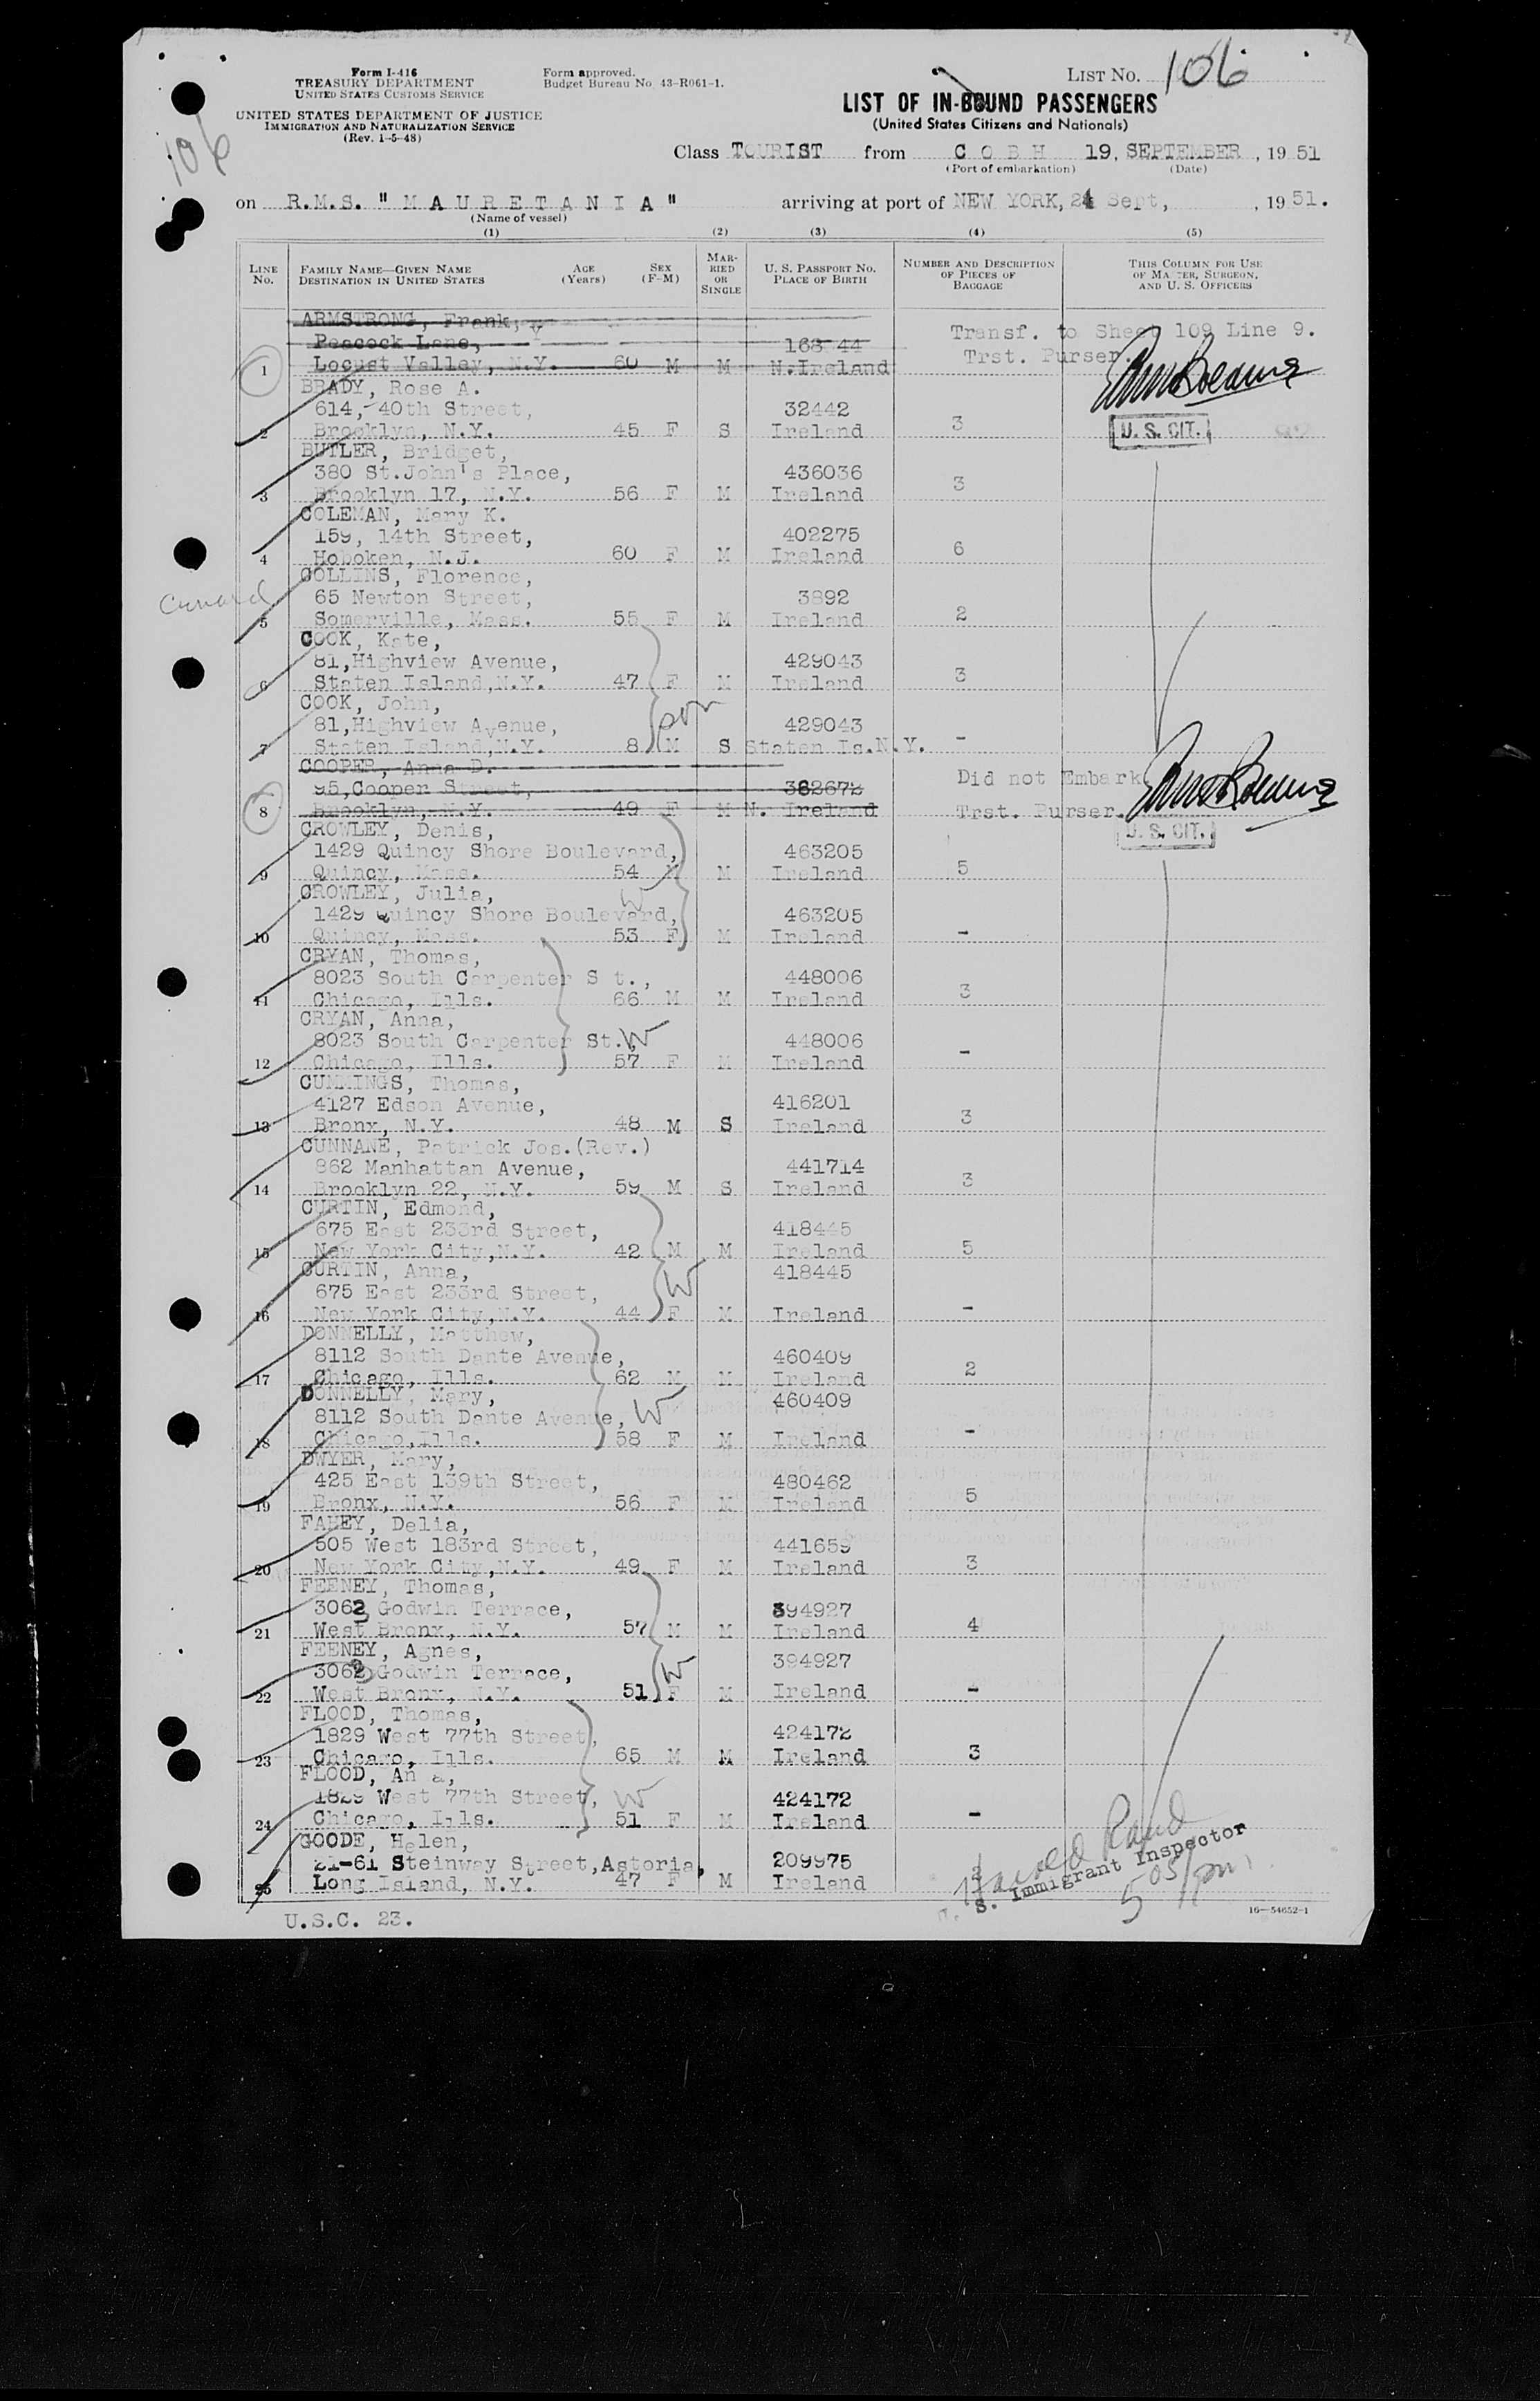 Form I-416
TREASURY DEPARTMENT
UNITED STATES CUSTOMS SERVICE
UNITED STATES DEPARTMENT OF JUSTICE
IMMIGRATION AND NATURALIZATION SERVICE
(Rev. 1-5-48)
Form approved.
Budget Bureau No. 43-R061-1.
LIST No. 106
106
LIST OF IN-BOUND PASSENGERS
(United States Citizens and Nationals)
Class TOURIST from COBH 19, SEPTEMBER, 1951
(Port of embarkation) (Date)
on R.M.S. "MAURETANIA" arriving at port of NEW YORK, 24 Sept, , 1951.
(Name of vessel)
(1) (2) (3) (4) (5)
LINE No. FAMILY NAME—GIVEN NAME DESTINATION IN UNITED STATES AGE (Years) SEX (F-M) MARRIED OR SINGLE U. S. PASSPORT NO. PLACE OF BIRTH NUMBER AND DESCRIPTION OF PIECES OF BAGGAGE THIS COLUMN FOR USE OF MASTER, SURGEON, AND U. S. OFFICERS
ARMSTRONG, Frank,
Peacock Lane, 168 44 Transf. to Sheet 109 Line 9.
1 Locust Valley, N.Y. 60 M M N.Ireland Trst. Purser.
BRADY, Rose A.
614, 40th Street, 32442
2 Brooklyn, N.Y. 45 F S Ireland 3 U. S. CIT.
BUTLER, Bridget,
380 St.John's Place, 436036
3 Brooklyn 17, N.Y. 56 F M Ireland 3
COLEMAN, Mary K.
159, 14th Street, 402275
4 Hoboken, N.J. 60 F M Ireland 6
COLLINS, Florence,
Cunard 65 Newton Street, 3892
5 Somerville, Mass. 55 F M Ireland 2
COOK, Kate,
81,Highview Avenue, 429043
6 Staten Island,N.Y. 47 F M Ireland 3
COOK, John, son
81,Highview Avenue, 429043
7 Staten Island,N.Y. 8 M S Staten Is.N.Y. -
COOPER, Anna D.
95,Cooper Street, 362672 Did not Embark
8 Brooklyn, N.Y. 49 F M N. Ireland Trst. Purser.
CROWLEY, Denis, U. S. CIT.
1429 Quincy Shore Boulevard, 463205
9 Quincy, Mass. 54 M M Ireland 5
CROWLEY, Julia, W
1429 Quincy Shore Boulevard, 463205
10 Quincy, Mass. 53 F M Ireland -
CRYAN, Thomas,
8023 South Carpenter S t., 448006
11 Chicago, Ills. 66 M M Ireland 3
CRYAN, Anna,
8023 South Carpenter St., W 448006
12 Chicago, Ills. 57 F M Ireland -
CUMMINGS, Thomas,
4127 Edson Avenue, 416201
13 Bronx, N.Y. 48 M S Ireland 3
CUNNANE, Patrick Jos.(Rev.)
862 Manhattan Avenue, 441714
14 Brooklyn 22, N.Y. 59 M S Ireland 3
CURTIN, Edmond,
675 East 233rd Street, 418445
15 New York City,N.Y. 42 M M Ireland 5
CURTIN, Anna, W 418445
675 East 233rd Street,
16 New York City,N.Y. 44 F M Ireland -
DONNELLY, Matthew,
8112 South Dante Avenue, 460409
17 Chicago, Ills. 62 M M Ireland 2
DONNELLY, Mary, 460409
8112 South Dante Avenue, W
18 Chicago,Ills. 58 F M Ireland -
DWYER, Mary,
425 East 139th Street, 480462
19 Bronx, N.Y. 56 F M Ireland 5
FAHEY, Delia,
505 West 183rd Street, 441659
20 New York City,N.Y. 49 F M Ireland 3
FEENEY, Thomas,
3063 Godwin Terrace, 394927
21 West Bronx, N.Y. 57 M M Ireland 4
FEENEY, Agnes, 394927
3063 Godwin Terrace, W
22 West Bronx, N.Y. 51 F M Ireland -
FLOOD, Thomas,
1829 West 77th Street, 424172
23 Chicago, Ills. 65 M M Ireland 3
FLOOD, An a,
1829 West 77th Street, W 424172
24 Chicago, Ills. 51 F M Ireland -
GOODE, Helen,
21-61 Steinway Street,Astoria, 209975
25 Long Island, N.Y. 47 F M Ireland
S. Immigrant Inspector
5 05 pm
U.S.C. 23.
16—54652-1